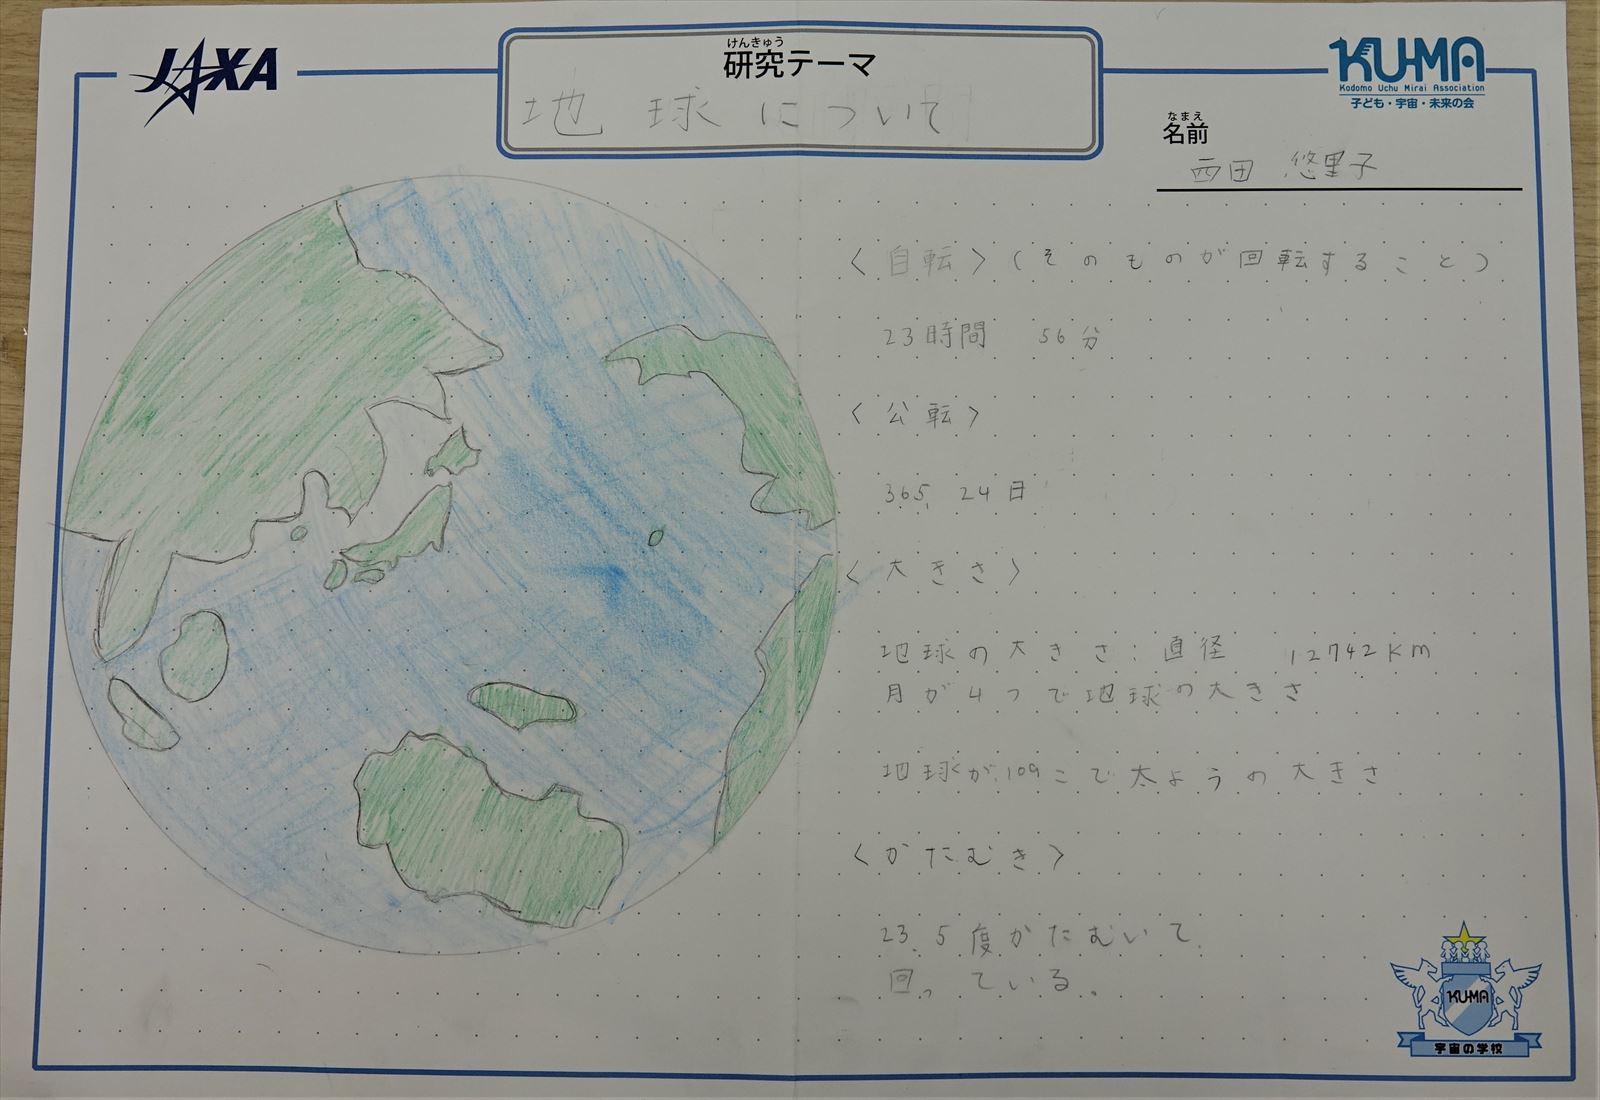 JAXA
けんきゅう
研究テーマ
地球について
KU-MA
Kodomo Uchu Mirai Association
子ども・宇宙・未来の会
なまえ
名前
西田 悠里子
〈自転〉(そのものが回転すること)
23時間 56分
〈公転〉
365.24日
〈大きさ〉
地球の大きさ:直径 12742km
月が4つで地球の大きさ
地球が109こで太ようの大きさ
〈かたむき〉
23.5度かたむいて
回っている。
KU-MA
宇宙の学校